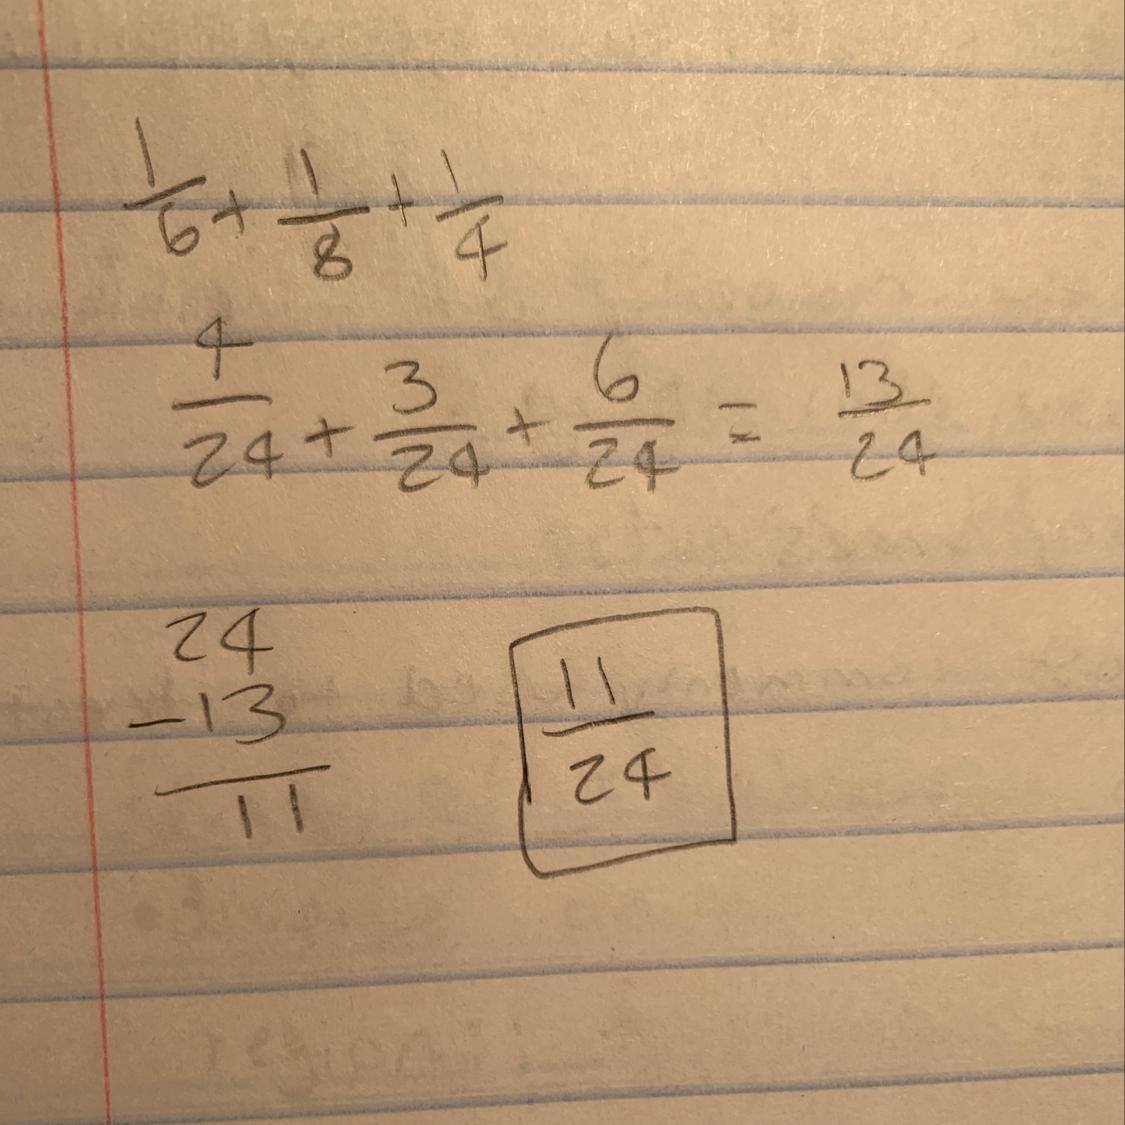 1/6 + 1/8 + 1/4
4/24 + 3/24 + 6/24 = 13/24
24
-13
11
11/24